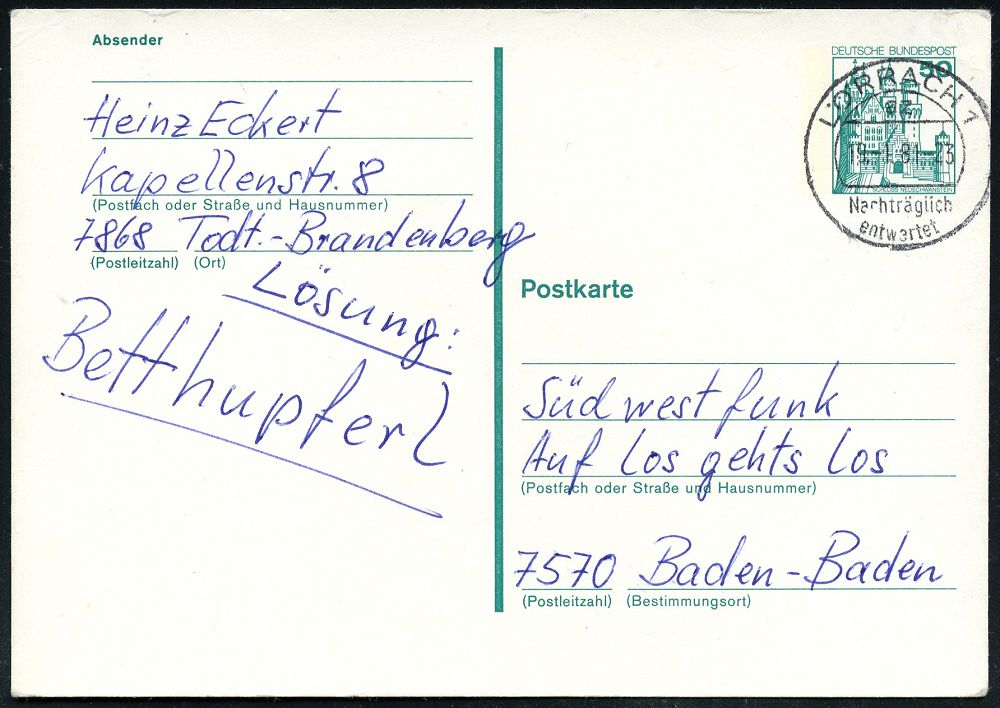 Absender
Heinz Eckert
Kapellenstr. 8
(Postfach oder Straße und Hausnummer)
7868 Todt.-Brandenberg
(Postleitzahl) (Ort)
Lösung:
Betthupferl
DEUTSCHE BUNDESPOST
50
SCHLOSS NEUSCHWANSTEIN
LÖRRACH 1
19.-1.81-23
Nachträglich
entwertet
Postkarte
Südwestfunk
Auf Los gehts Los
(Postfach oder Straße und Hausnummer)
7570 Baden-Baden
(Postleitzahl) (Bestimmungsort)